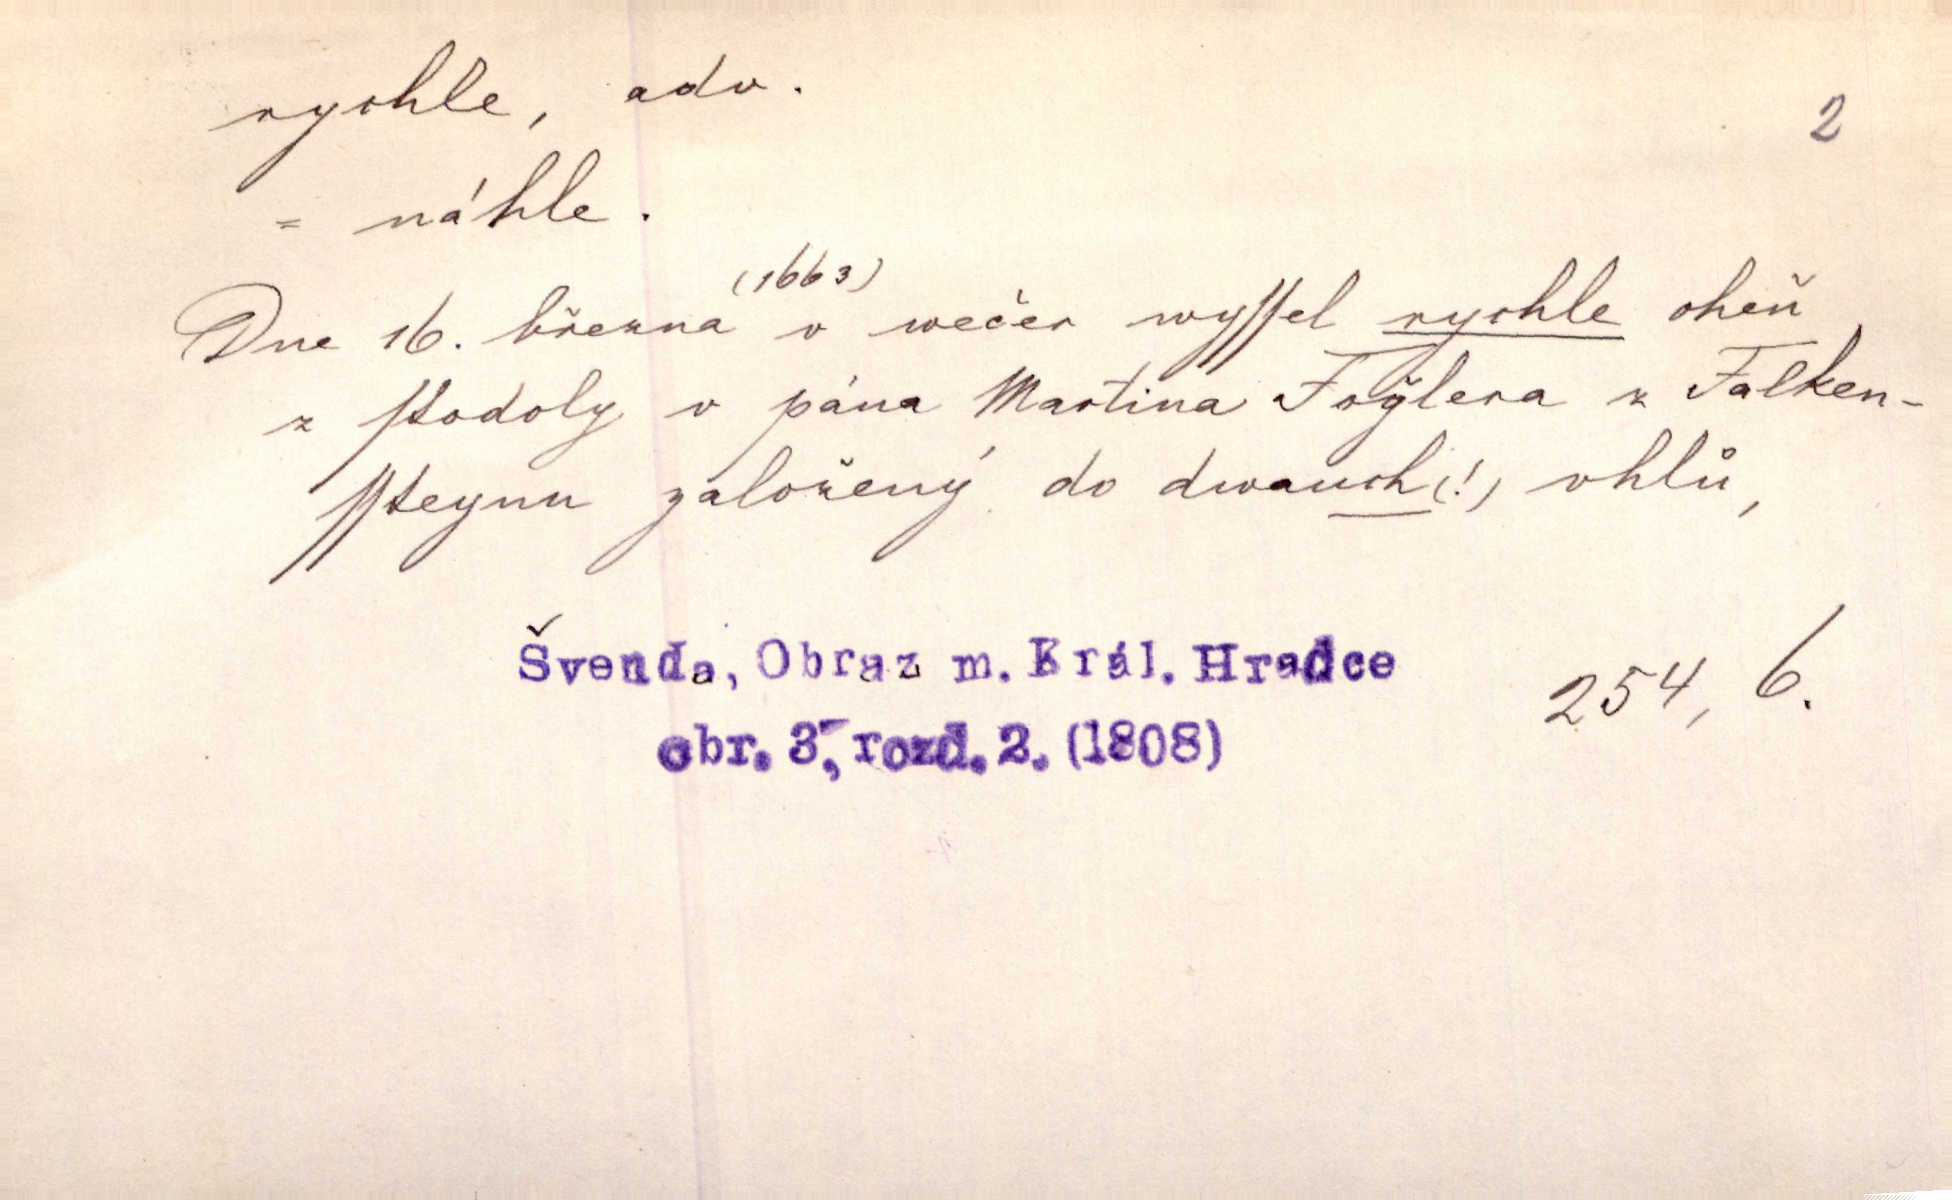 rychle, adv.
2
= náhle.
(1663)
Dne 16. března v wečer wyssel rychle oheň
z stodoly v pána Martina Foğlera z Falken-
steynu založený do dwauch(!) vhlů,
Švenda, Obraz m. Král. Hradce
254, 6.
obr. 3, rozd. 2. (1808)